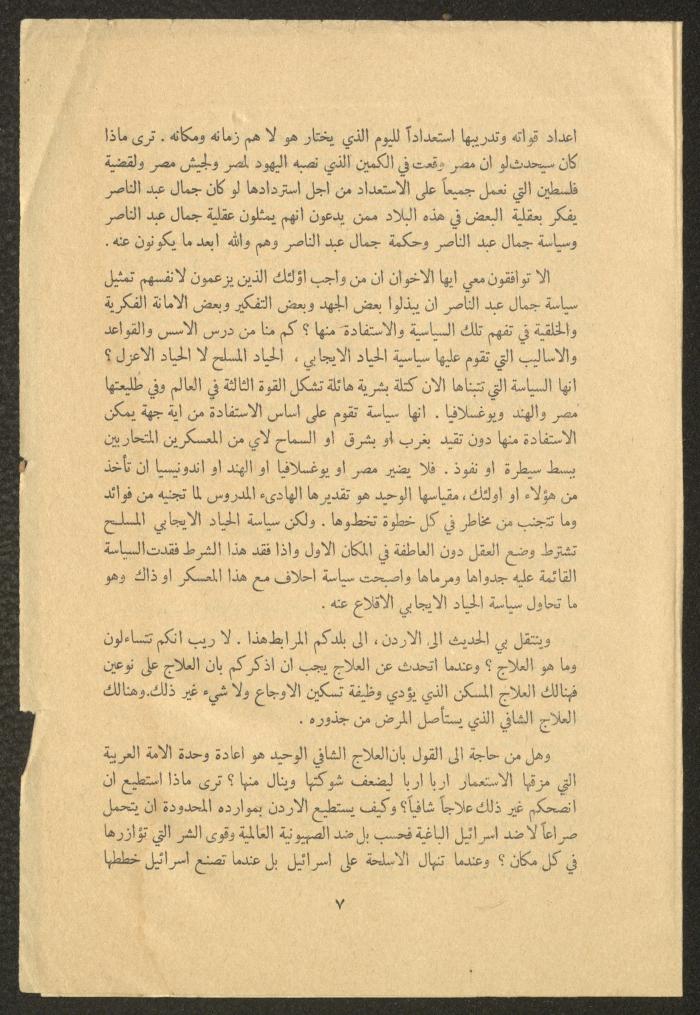 اعداد قواته وتدريبها استعداداً لليوم الذي يختار هو لا هم زمانه ومكانه . ترى ماذا
كان سيحدث لو ان مصر وقعت في الكمين الذي نصبه اليهود لمصر ولجيش مصر ولقضية
فلسطين التي نعمل جميعاً على الاستعداد من اجل استردادها لو كان جمال عبد الناصر
يفكر بعقلية البعض في هذه البلاد ممن يدعون انهم يمثلون عقلية جمال عبد الناصر
وسياسة جمال عبد الناصر وحكمة جمال عبد الناصر وهم والله ابعد ما يكونون عنه .
الا توافقون معي ايها الاخوان ان من واجب اؤلئك الذين يزعمون لانفسهم تمثيل
سياسة جمال عبد الناصر ان يبذلوا بعض الجهد وبعض التفكير وبعض الامانة الفكرية
والخلقية في تفهم تلك السياسية والاستفادة منها ؟ كم منا من درس الاسس والقواعد
والاساليب التي تقوم عليها سياسية الحياد الايجابي ، الحياد المسلح لا الحياد الاعزل ؟
انها السياسة التي تتبناها الان كتلة بشرية هائلة تشكل القوة الثالثة في العالم وفي طليعتها
مصر والهند ويوغسلافيا . انها سياسة تقوم على اساس الاستفادة من اية جهة يمكن
الاستفادة منها دون تقيد بغرب او بشرق او السماح لاي من المعسكرين المتحاربين
ببسط سيطرة او نفوذ . فلا يضير مصر او يوغسلافيا او الهند او اندونيسيا ان تأخذ
من هؤلاء او اولئك ، مقياسها الوحيد هو تقديرها الهادىء المدروس لما تجنيه من فوائد
وما تتجنب من مخاطر في كل خطوة تخطوها . ولكن سياسة الحياد الايجابي المسلح
تشترط وضع العقل دون العاطفة في المكان الاول واذا فقد هذا الشرط فقدت السياسة
القائمة عليه جدواها ومرماها واصبحت سياسة احلاف مع هذا المعسكر او ذاك وهو
ما تحاول سياسة الحياد الايجابي الاقلاع عنه .
وينتقل بي الحديث الى الاردن ، الى بلدكم المرابط هذا . لا ريب انكم تتساءلون
وما هو العلاج ؟ وعندما اتحدث عن العلاج يجب ان اذكركم بان العلاج على نوعين
فهنالك العلاج المسكن الذي يؤدي وظيفة تسكين الاوجاع ولا شيء غير ذلك.وهنالك
العلاج الشافي الذي يستأصل المرض من جذوره .
وهل من حاجة الى القول بان العلاج الشافي الوحيد هو اعادة وحدة الامة العربية
التي مزقها الاستعمار اربا اربا ليضعف شوكتها وينال منها ؟ ترى ماذا استطيع ان
انصحكم غير ذلك علاجاً شافياً؟ وكيف يستطيع الاردن بموارده المحدودة ان يتحمل
صراعاً لا ضد اسرائيل الباغية فحسب بل ضد الصهيونية العالمية وقوى الشر التي تؤازرها
في كل مكان ؟ وعندما تنهال الاسلحة على اسرائيل بل عندما تصنع اسرائيل خططها
٧